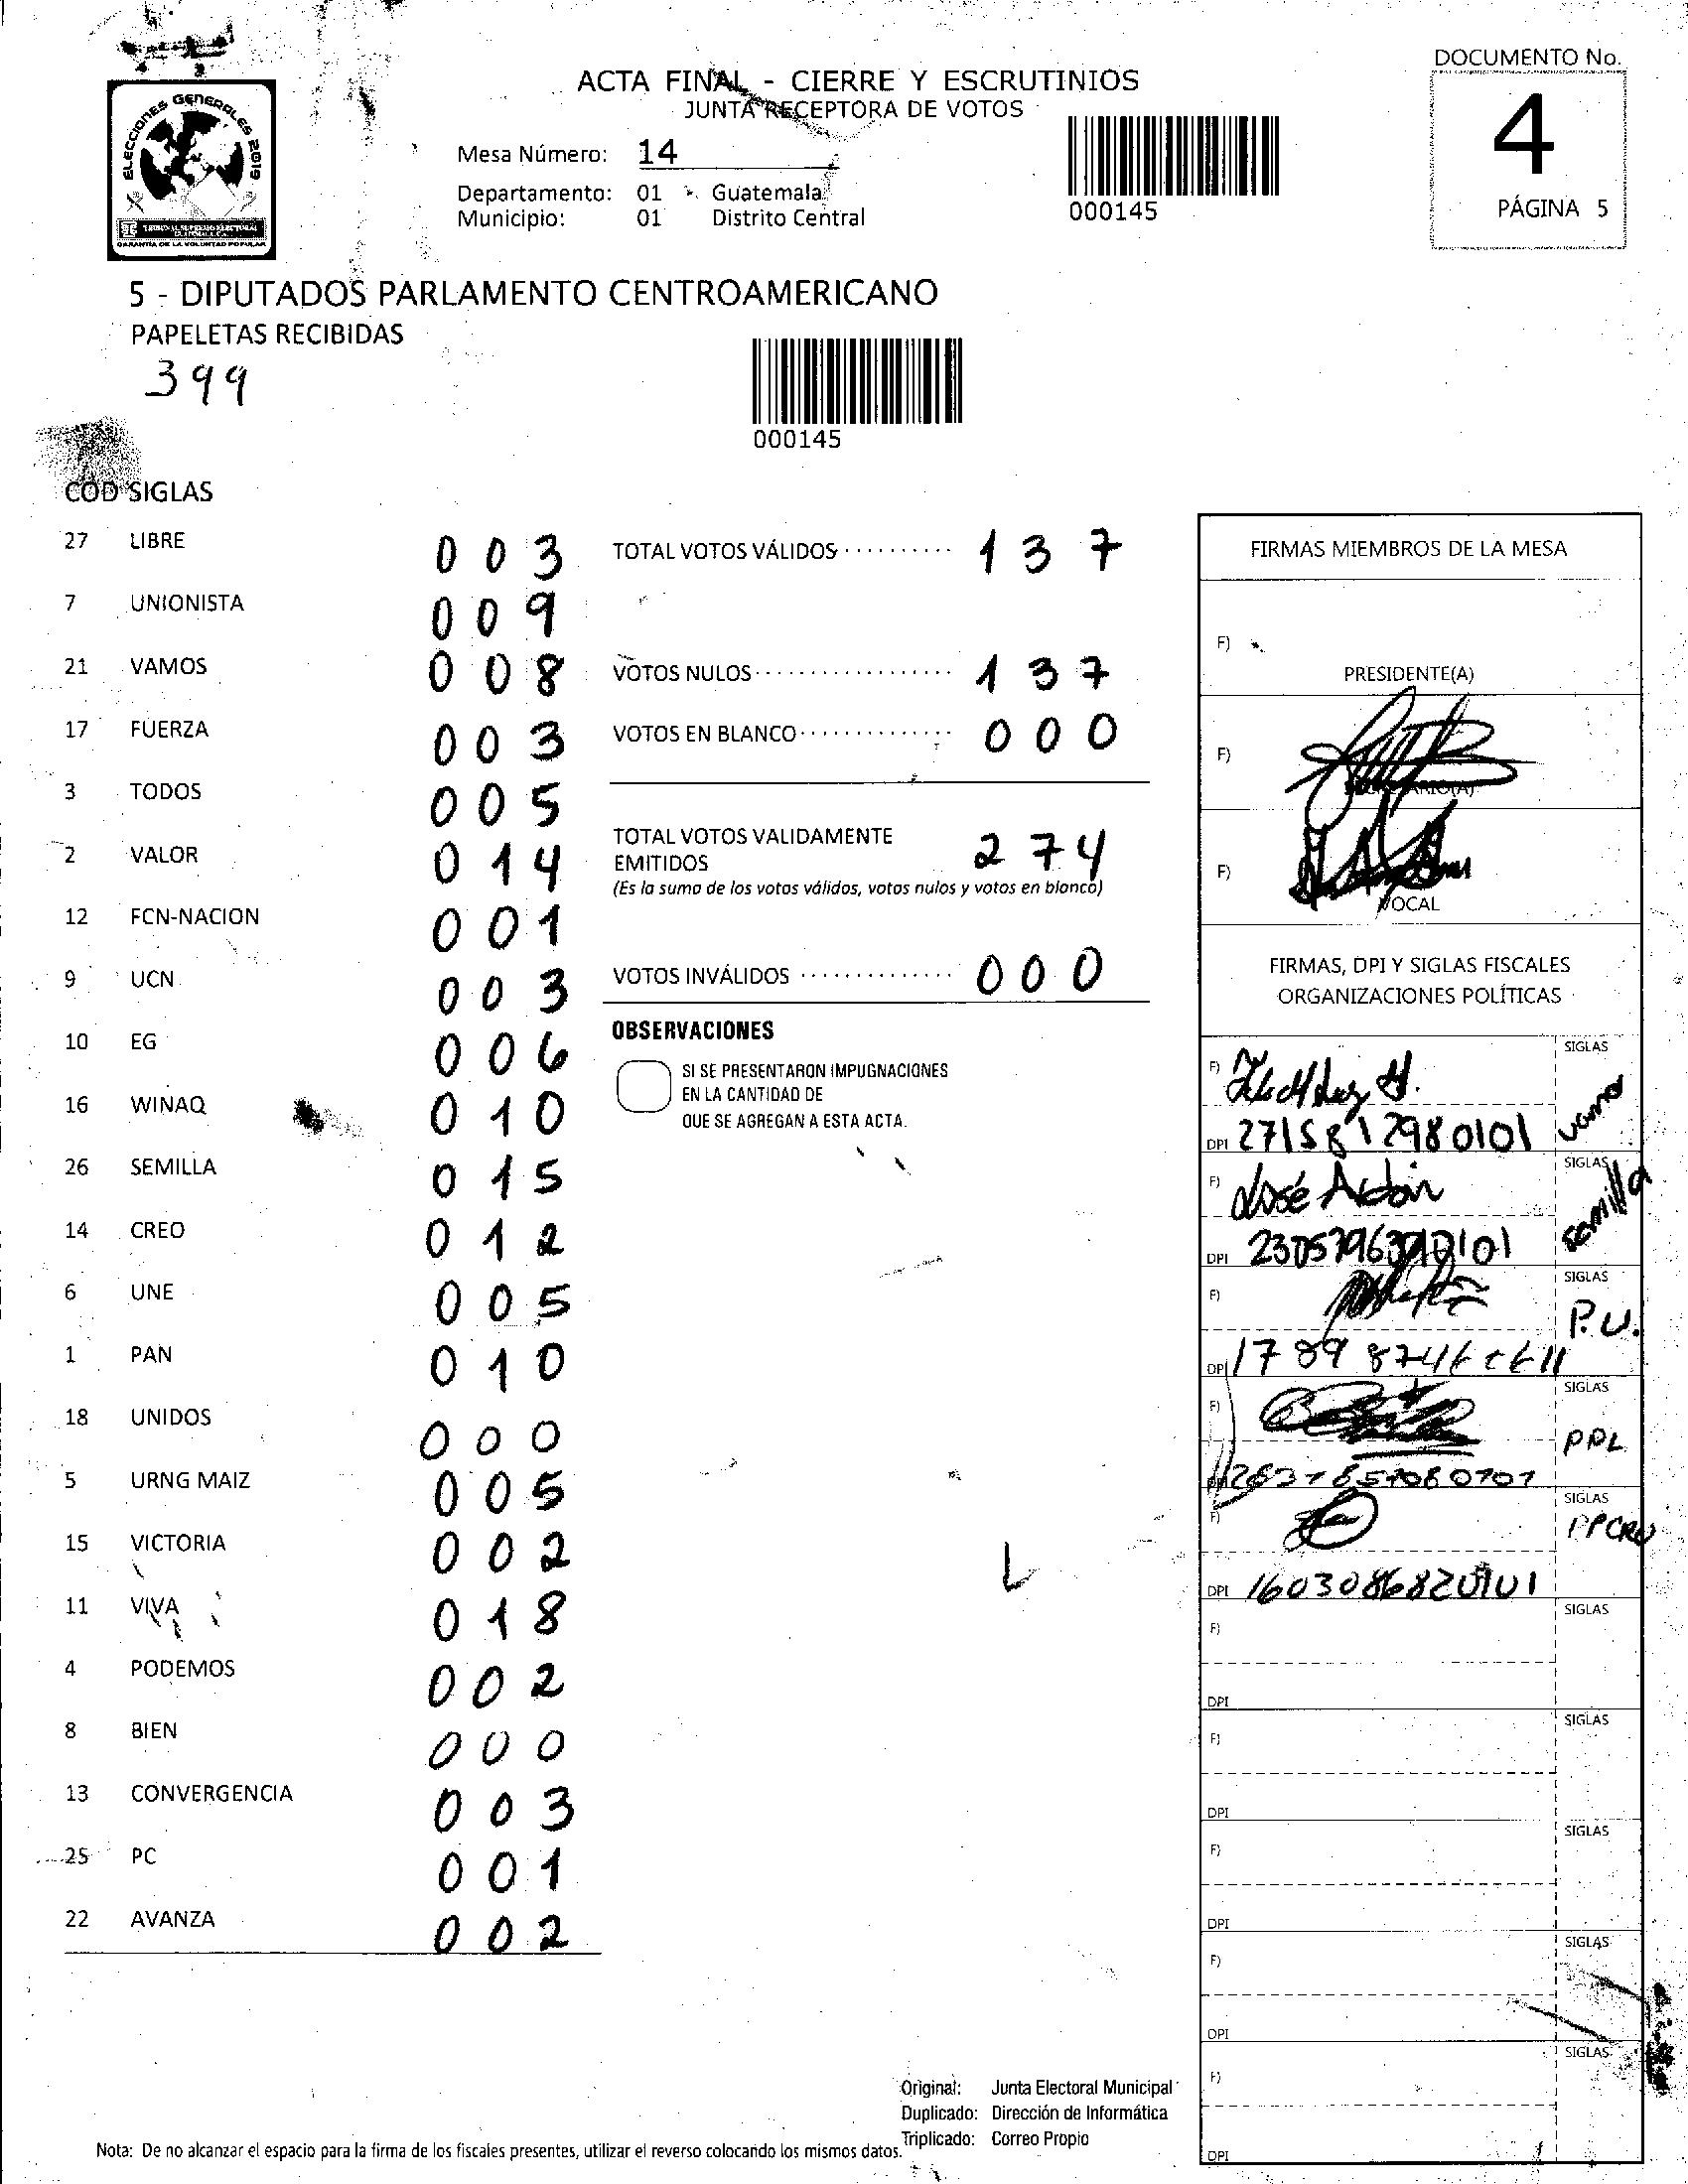 DOCUMENTO No.
4
PÁGINA 5
ACTA FINAL - CIERRE Y ESCRUTINIOS
JUNTA RECEPTORA DE VOTOS
Mesa Número: 14
Departamento: 01 Guatemala
Municipio: 01 Distrito Central
000145
ELECCIONES GENERALES 2019
TRIBUNAL SUPREMO ELECTORAL
GARANTIA DE LA VOLUNTAD POPULAR
5 - DIPUTADOS PARLAMENTO CENTROAMERICANO
PAPELETAS RECIBIDAS
399
000145
COD SIGLAS
27 LIBRE 0 0 3
7 UNIONISTA 0 0 9
21 VAMOS 0 0 8
17 FUERZA 0 0 3
3 TODOS 0 0 5
2 VALOR 0 1 4
12 FCN-NACION 0 0 1
9 UCN 0 0 3
10 EG 0 0 6
16 WINAQ 0 1 0
26 SEMILLA 0 1 5
14 CREO 0 1 2
6 UNE 0 0 5
1 PAN 0 1 0
18 UNIDOS 0 0 0
5 URNG MAIZ 0 0 5
15 VICTORIA 0 0 2
11 VIVA 0 1 8
4 PODEMOS 0 0 2
8 BIEN 0 0 0
13 CONVERGENCIA 0 0 3
25 PC 0 0 1
22 AVANZA 0 0 2
TOTAL VOTOS VÁLIDOS 1 3 7
VOTOS NULOS 1 3 7
VOTOS EN BLANCO 0 0 0
TOTAL VOTOS VALIDAMENTE
EMITIDOS 2 7 4
(Es la suma de los votos válidos, votos nulos y votos en blanco)
VOTOS INVÁLIDOS 0 0 0
OBSERVACIONES
SI SE PRESENTARON IMPUGNACIONES
EN LA CANTIDAD DE
QUE SE AGREGAN A ESTA ACTA.
FIRMAS MIEMBROS DE LA MESA
F)
PRESIDENTE(A)
F)
SECRETARIO(A)
F)
VOCAL
FIRMAS, DPI Y SIGLAS FISCALES
ORGANIZACIONES POLÍTICAS
F) SIGLAS
DPI vamos
F) José Adán SIGLAS
DPI semilla
F) SIGLAS
P.U.
DPI
F) SIGLAS
PPL
F) SIGLAS
DPI
F) SIGLAS
DPI
F) SIGLAS
DPI
F) SIGLAS
DPI
F) SIGLAS
DPI
F) SIGLAS
DPI
Original: Junta Electoral Municipal
Duplicado: Dirección de Informática
Triplicado: Correo Propio
Nota: De no alcanzar el espacio para la firma de los fiscales presentes, utilizar el reverso colocando los mismos datos.